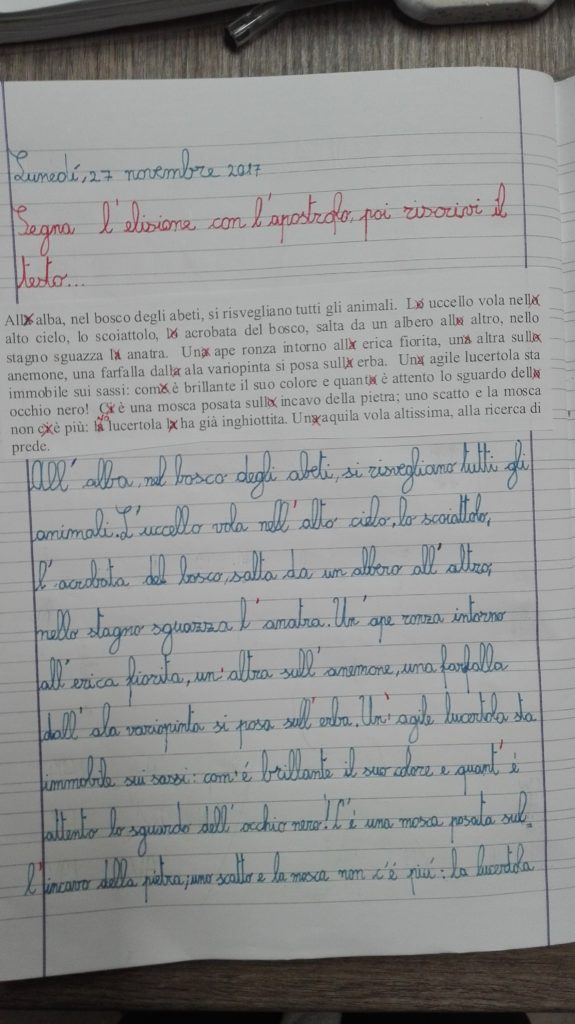 Lunedí, 27 novembre 2017
Segna l'elisione con l'apostrofo, poi riscrivi il
testo...
Alla alba, nel bosco degli abeti, si risvegliano tutti gli animali. Lo uccello vola nello
alto cielo, lo scoiattolo, lo acrobata del bosco, salta da un albero allo altro, nello
stagno sguazza la anatra. Una ape ronza intorno alla erica fiorita, una altra sulla
anemone, una farfalla dalla ala variopinta si posa sulla erba. Una agile lucertola sta
immobile sui sassi: come è brillante il suo colore e quanto è attento lo sguardo dello
occhio nero! Ci è una mosca posata sullo incavo della pietra; uno scatto e la mosca
non ci è più: la lucertola la ha già inghiottita. Una aquila vola altissima, alla ricerca di
prede.
All' alba, nel bosco degli abeti, si risvegliano tutti gli
animali. L'uccello vola nell'alto cielo, lo scoiattolo,
l'acrobata del bosco, salta da un albero all'altro,
nello stagno sguazza l'anatra. Un'ape ronza intorno
all'erica fiorita, un'altra sull'anemone, una farfalla
dall'ala variopinta si posa sull'erba. Un'agile lucertola sta
immobile sui sassi: com'é brillante il suo colore e quant'é
attento lo sguardo dell'occhio nero! C'é una mosca posata sul=
l'incavo della pietra; uno scatto e la mosca non c'é piú: la lucertola